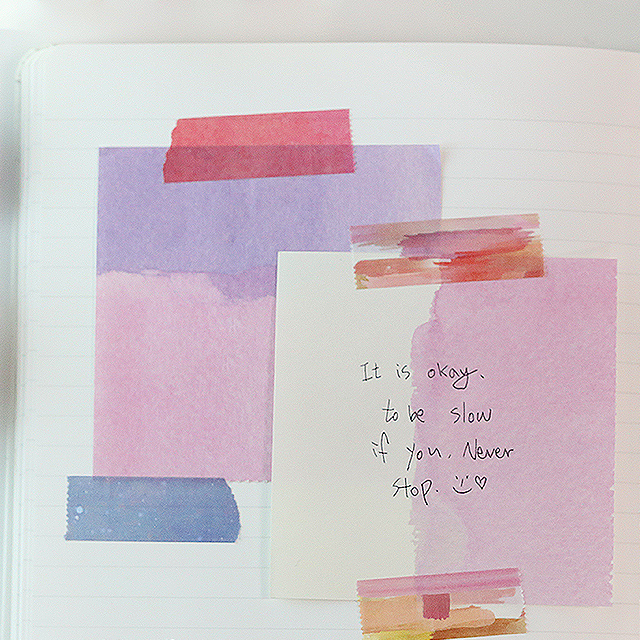 It is okay.
to be slow
if you. Never
stop. :) ♡